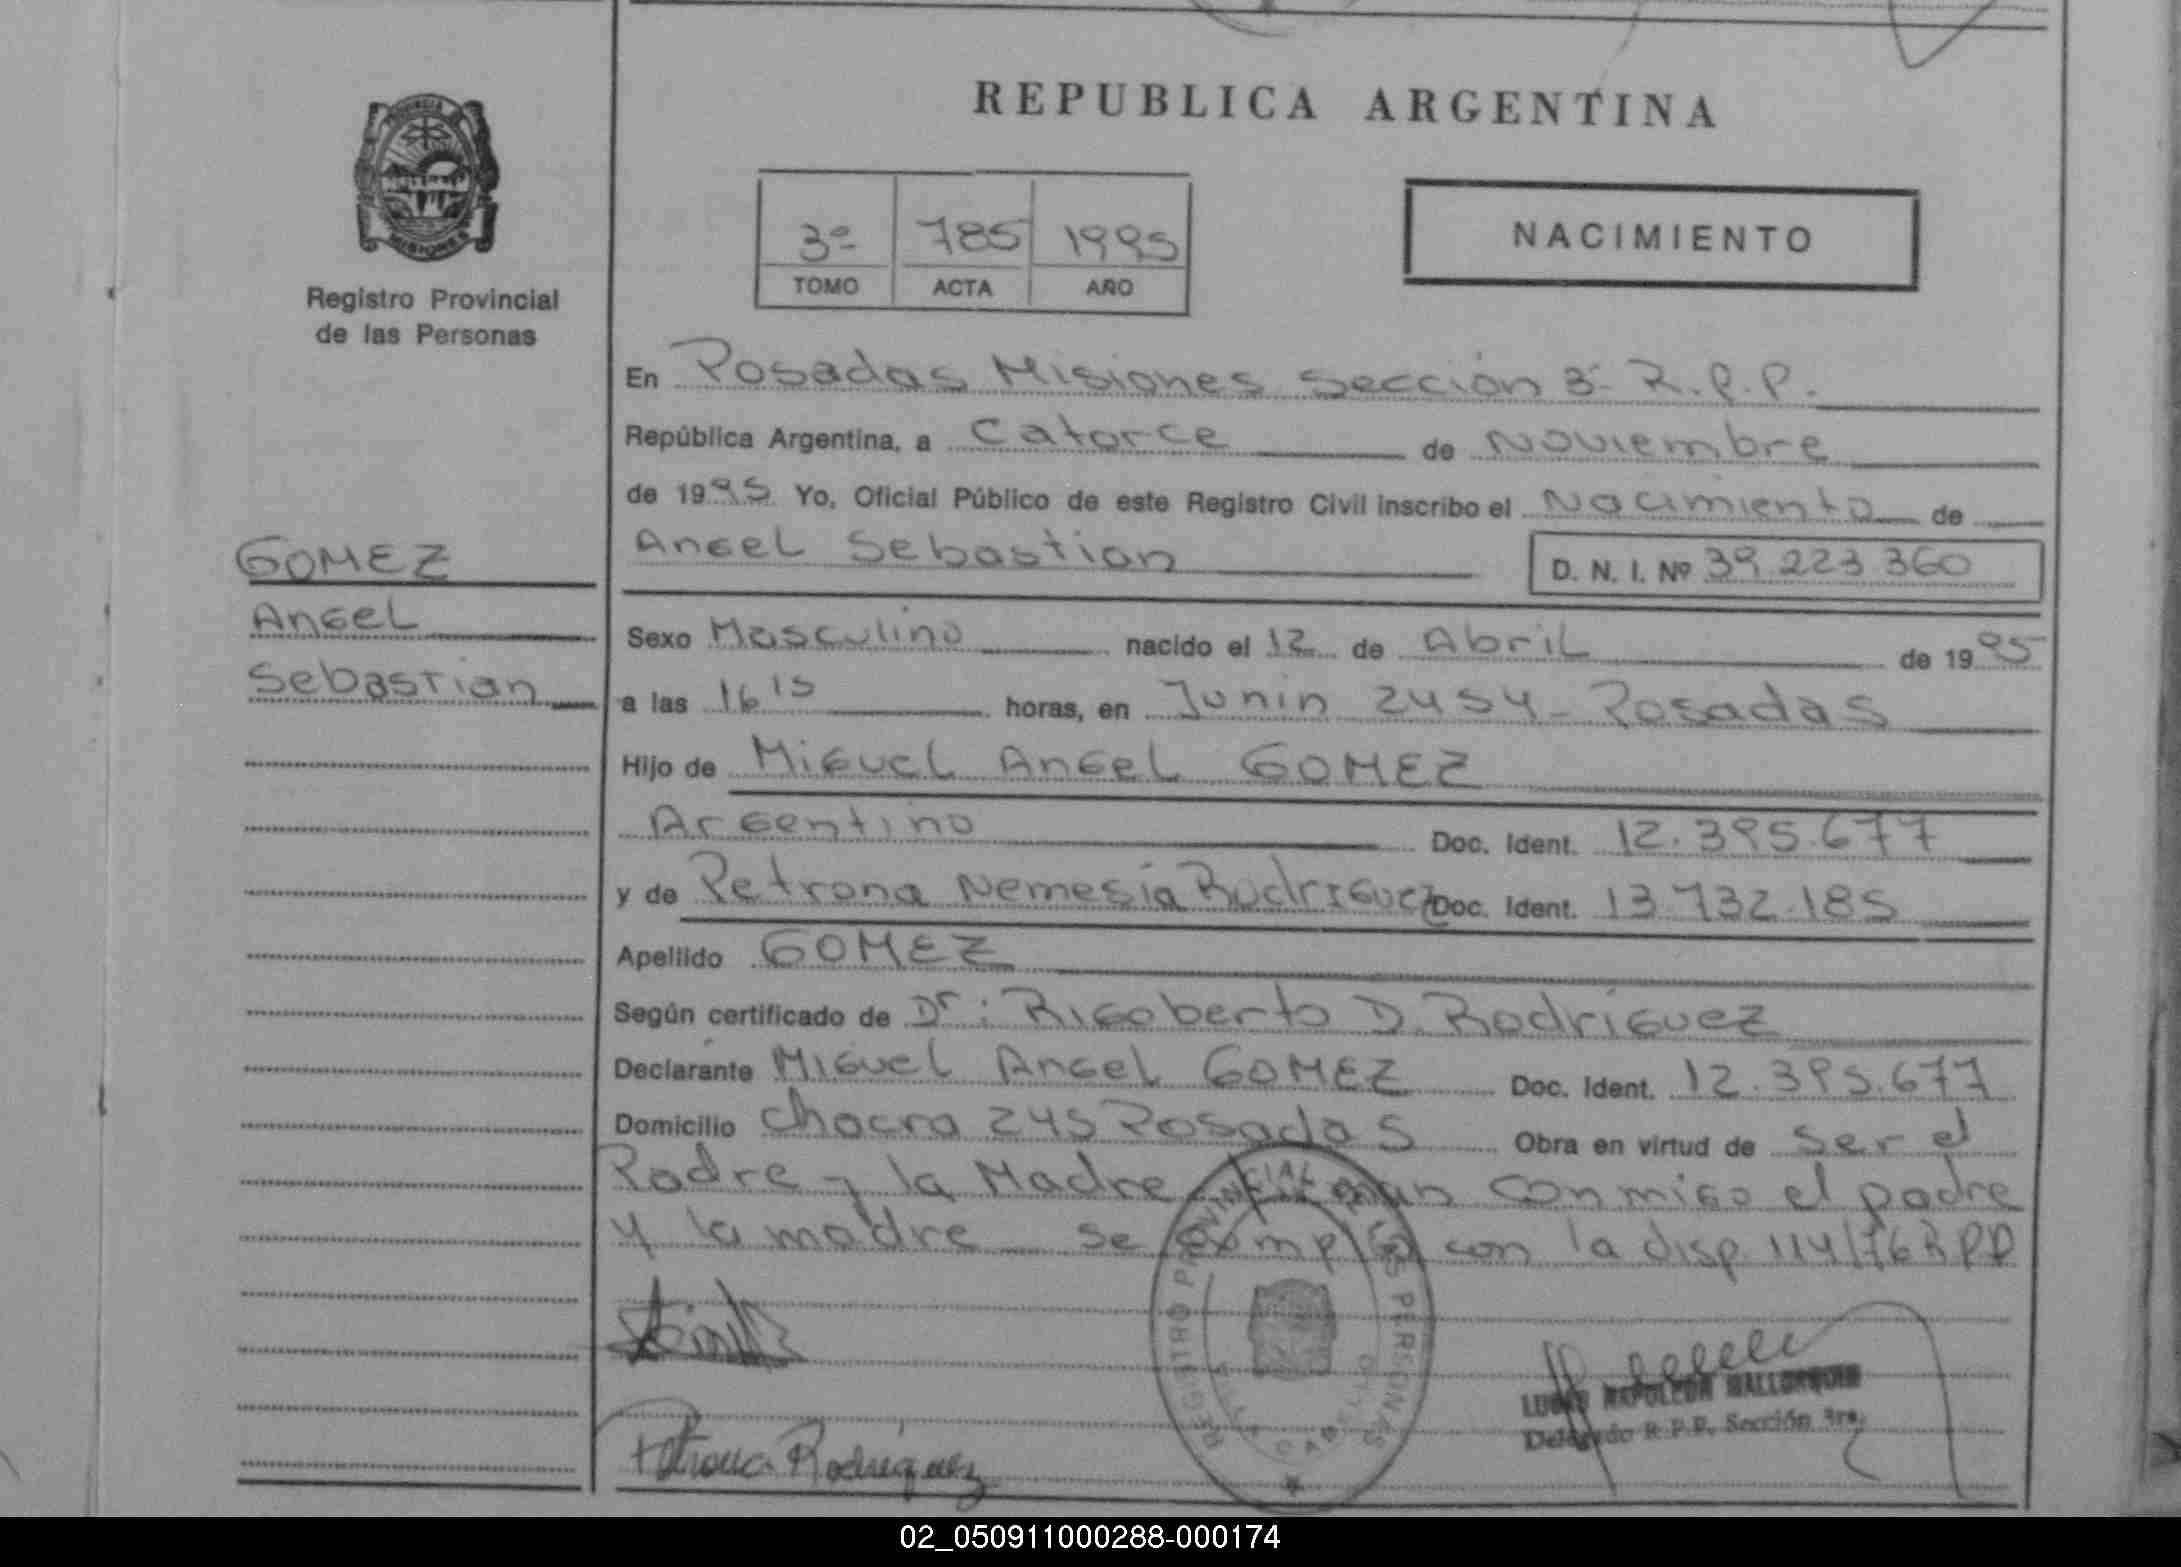 REPUBLICA ARGENTINA
MISIONES
Registro Provincial
de las Personas
3º 785 1995
TOMO ACTA AÑO
NACIMIENTO
En Posadas Misiones Sección 3ª R.P.P.
República Argentina, a Catorce de Noviembre
de 1995 Yo, Oficial Público de este Registro Civil inscribo el Nacimiento de
Angel Sebastian D. N. I. Nº 39.223.360
GOMEZ
Angel
Sebastian
Sexo Masculino nacido el 12 de Abril de 1995
a las 16 15 horas, en Junin 2454 - Posadas
Hijo de Miguel Angel GOMEZ
Argentino Doc. Ident. 12.395.677
y de Petrona Nemesia Rodriguez Doc. Ident. 13.732.185
Apellido GOMEZ
Según certificado de Dr: Rigoberto D. Rodriguez
Declarante Miguel Angel GOMEZ Doc. Ident. 12.395.677
Domicilio Chacra 245 Posadas Obra en virtud de Ser el
Padre y la Madre conmigo el padre
y la madre se cumplió con la disp. 114/76 RPP
REGISTRO PROVINCIAL DE LAS PERSONAS
Petrona Rodriguez
LUCAS NAPOLEON MALLORQUIN
Delegado R.P.P. Sección 3ra.
02_050911000288-000174